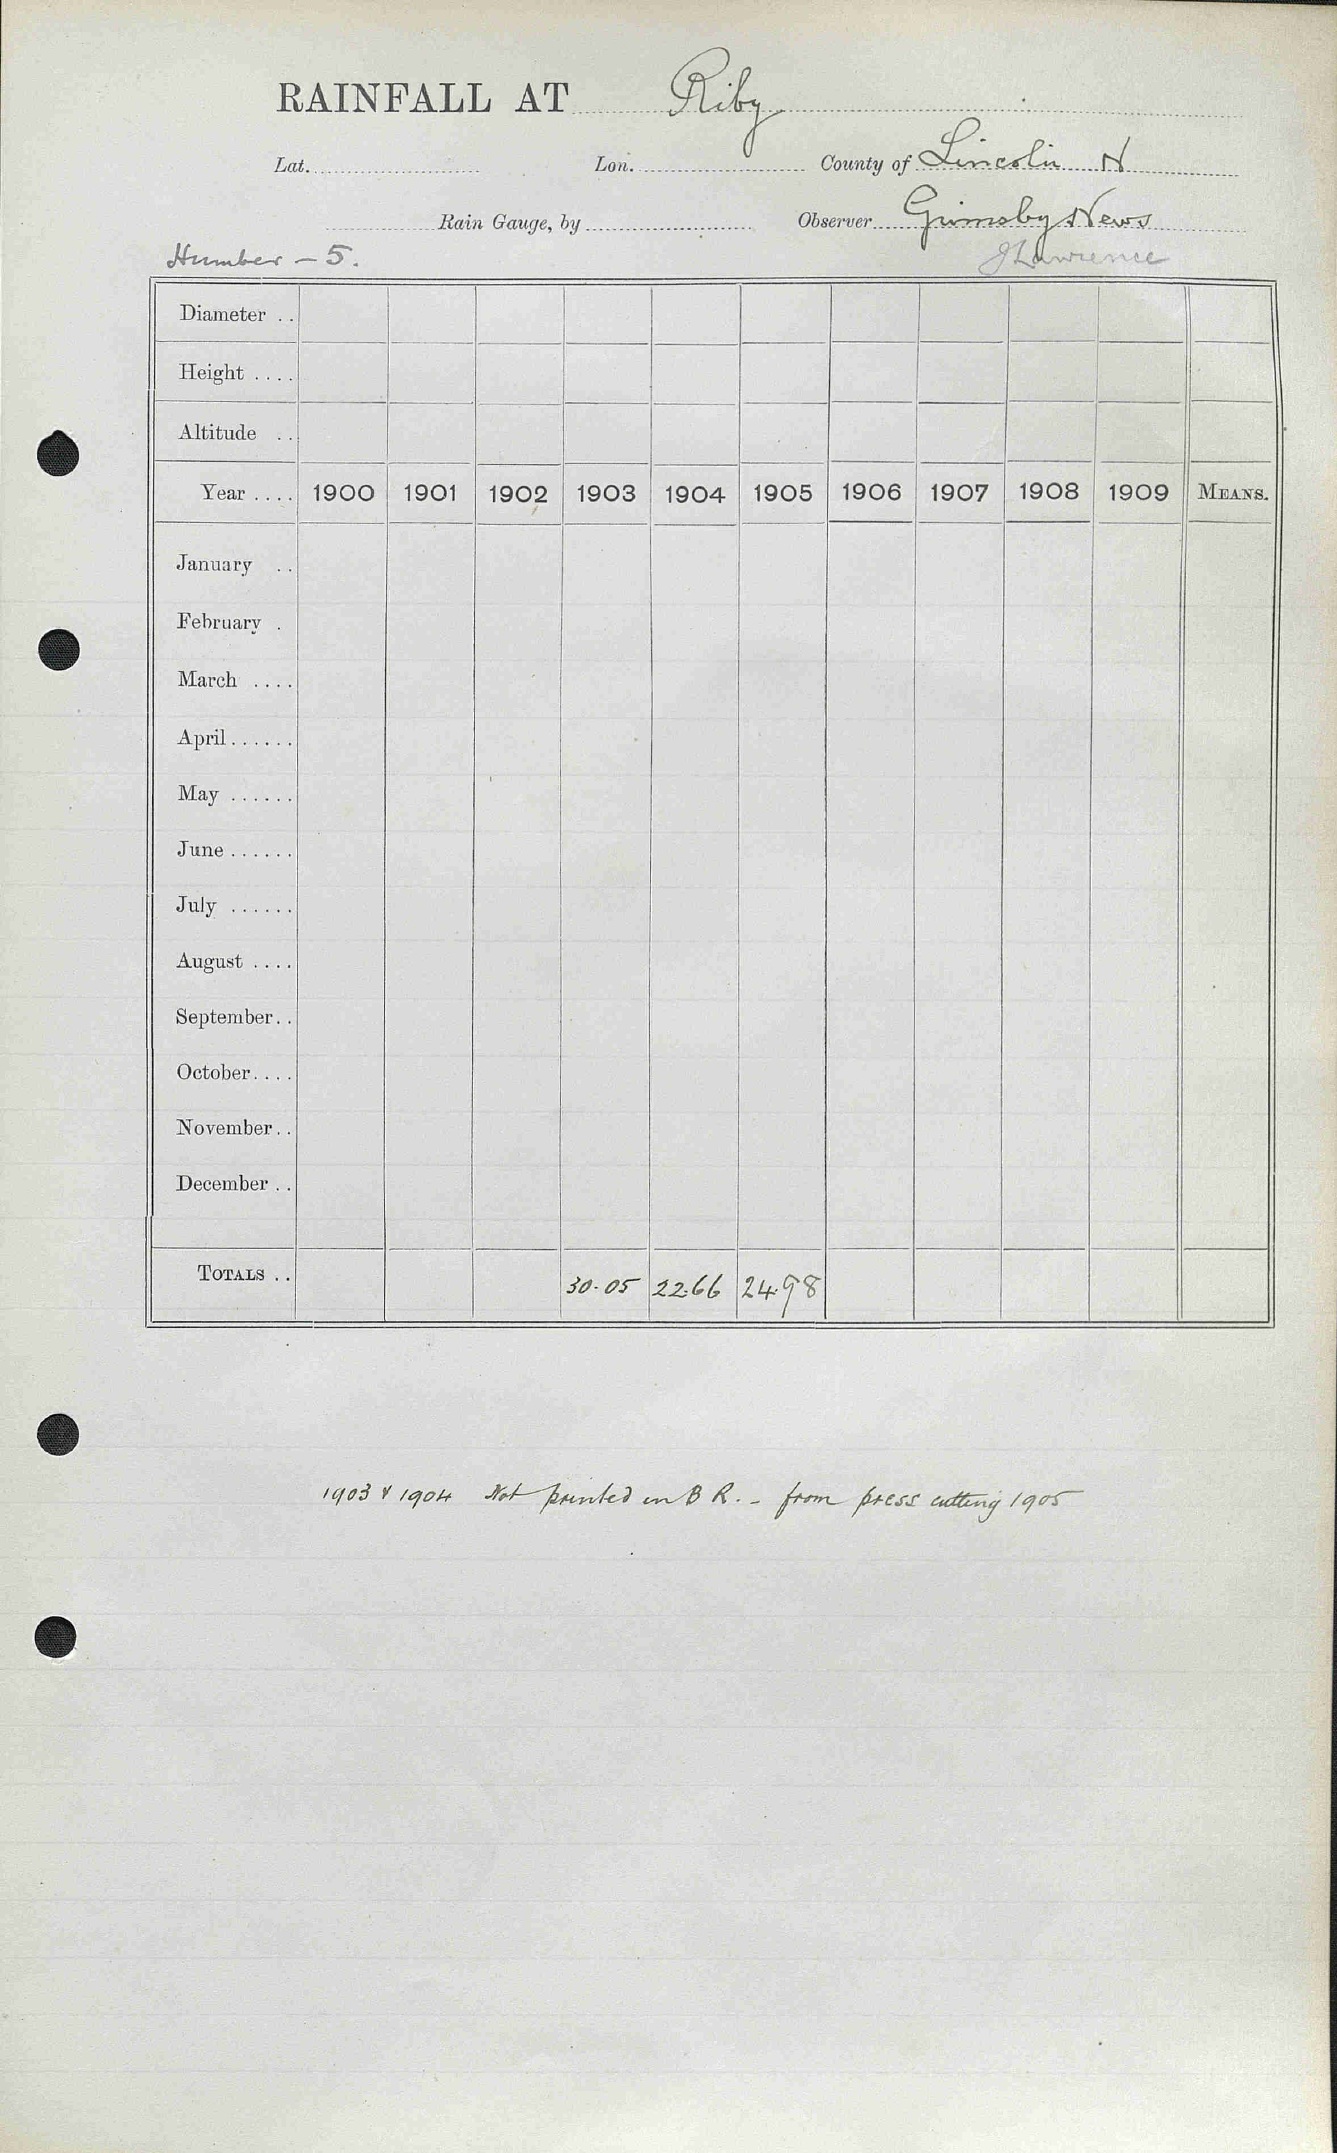 RAINFALL AT Riby
Lat. Lon. County of Lincoln N
Rain Gauge, by Observer Grimsby News
Humber - 5. J Lawrence
Diameter ..
Height ....
Altitude ..
Year .... 1900 1901 1902 1903 1904 1905 1906 1907 1908 1909 MEANS.
January ..
February .
March ....
April ......
May ......
June ......
July ......
August ....
September..
October....
November..
December ..
TOTALS .. 30.05 22.66 24.98
1903 & 1904 Not printed in B R. - from press cutting 1905